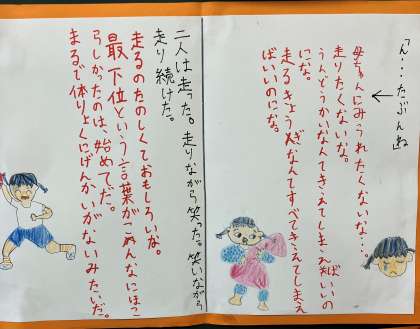 「ん・・・たぶんね
母ちゃんにみられたくないな・・・。
走りたくないな。
うんどうかいなんてきえてしまえばいいの
にな。
走るきょうぎなんてすべてきえてしまえ
ばいいのにな。
二人は走った。走りながら笑った。笑いながら
走り続けた。
走るのたのしくておもしろいな。
最下位という言葉がこんなにほこ
らしかったのは、始めてだ。
まるで体りょくにげんかいがないみたいだ。